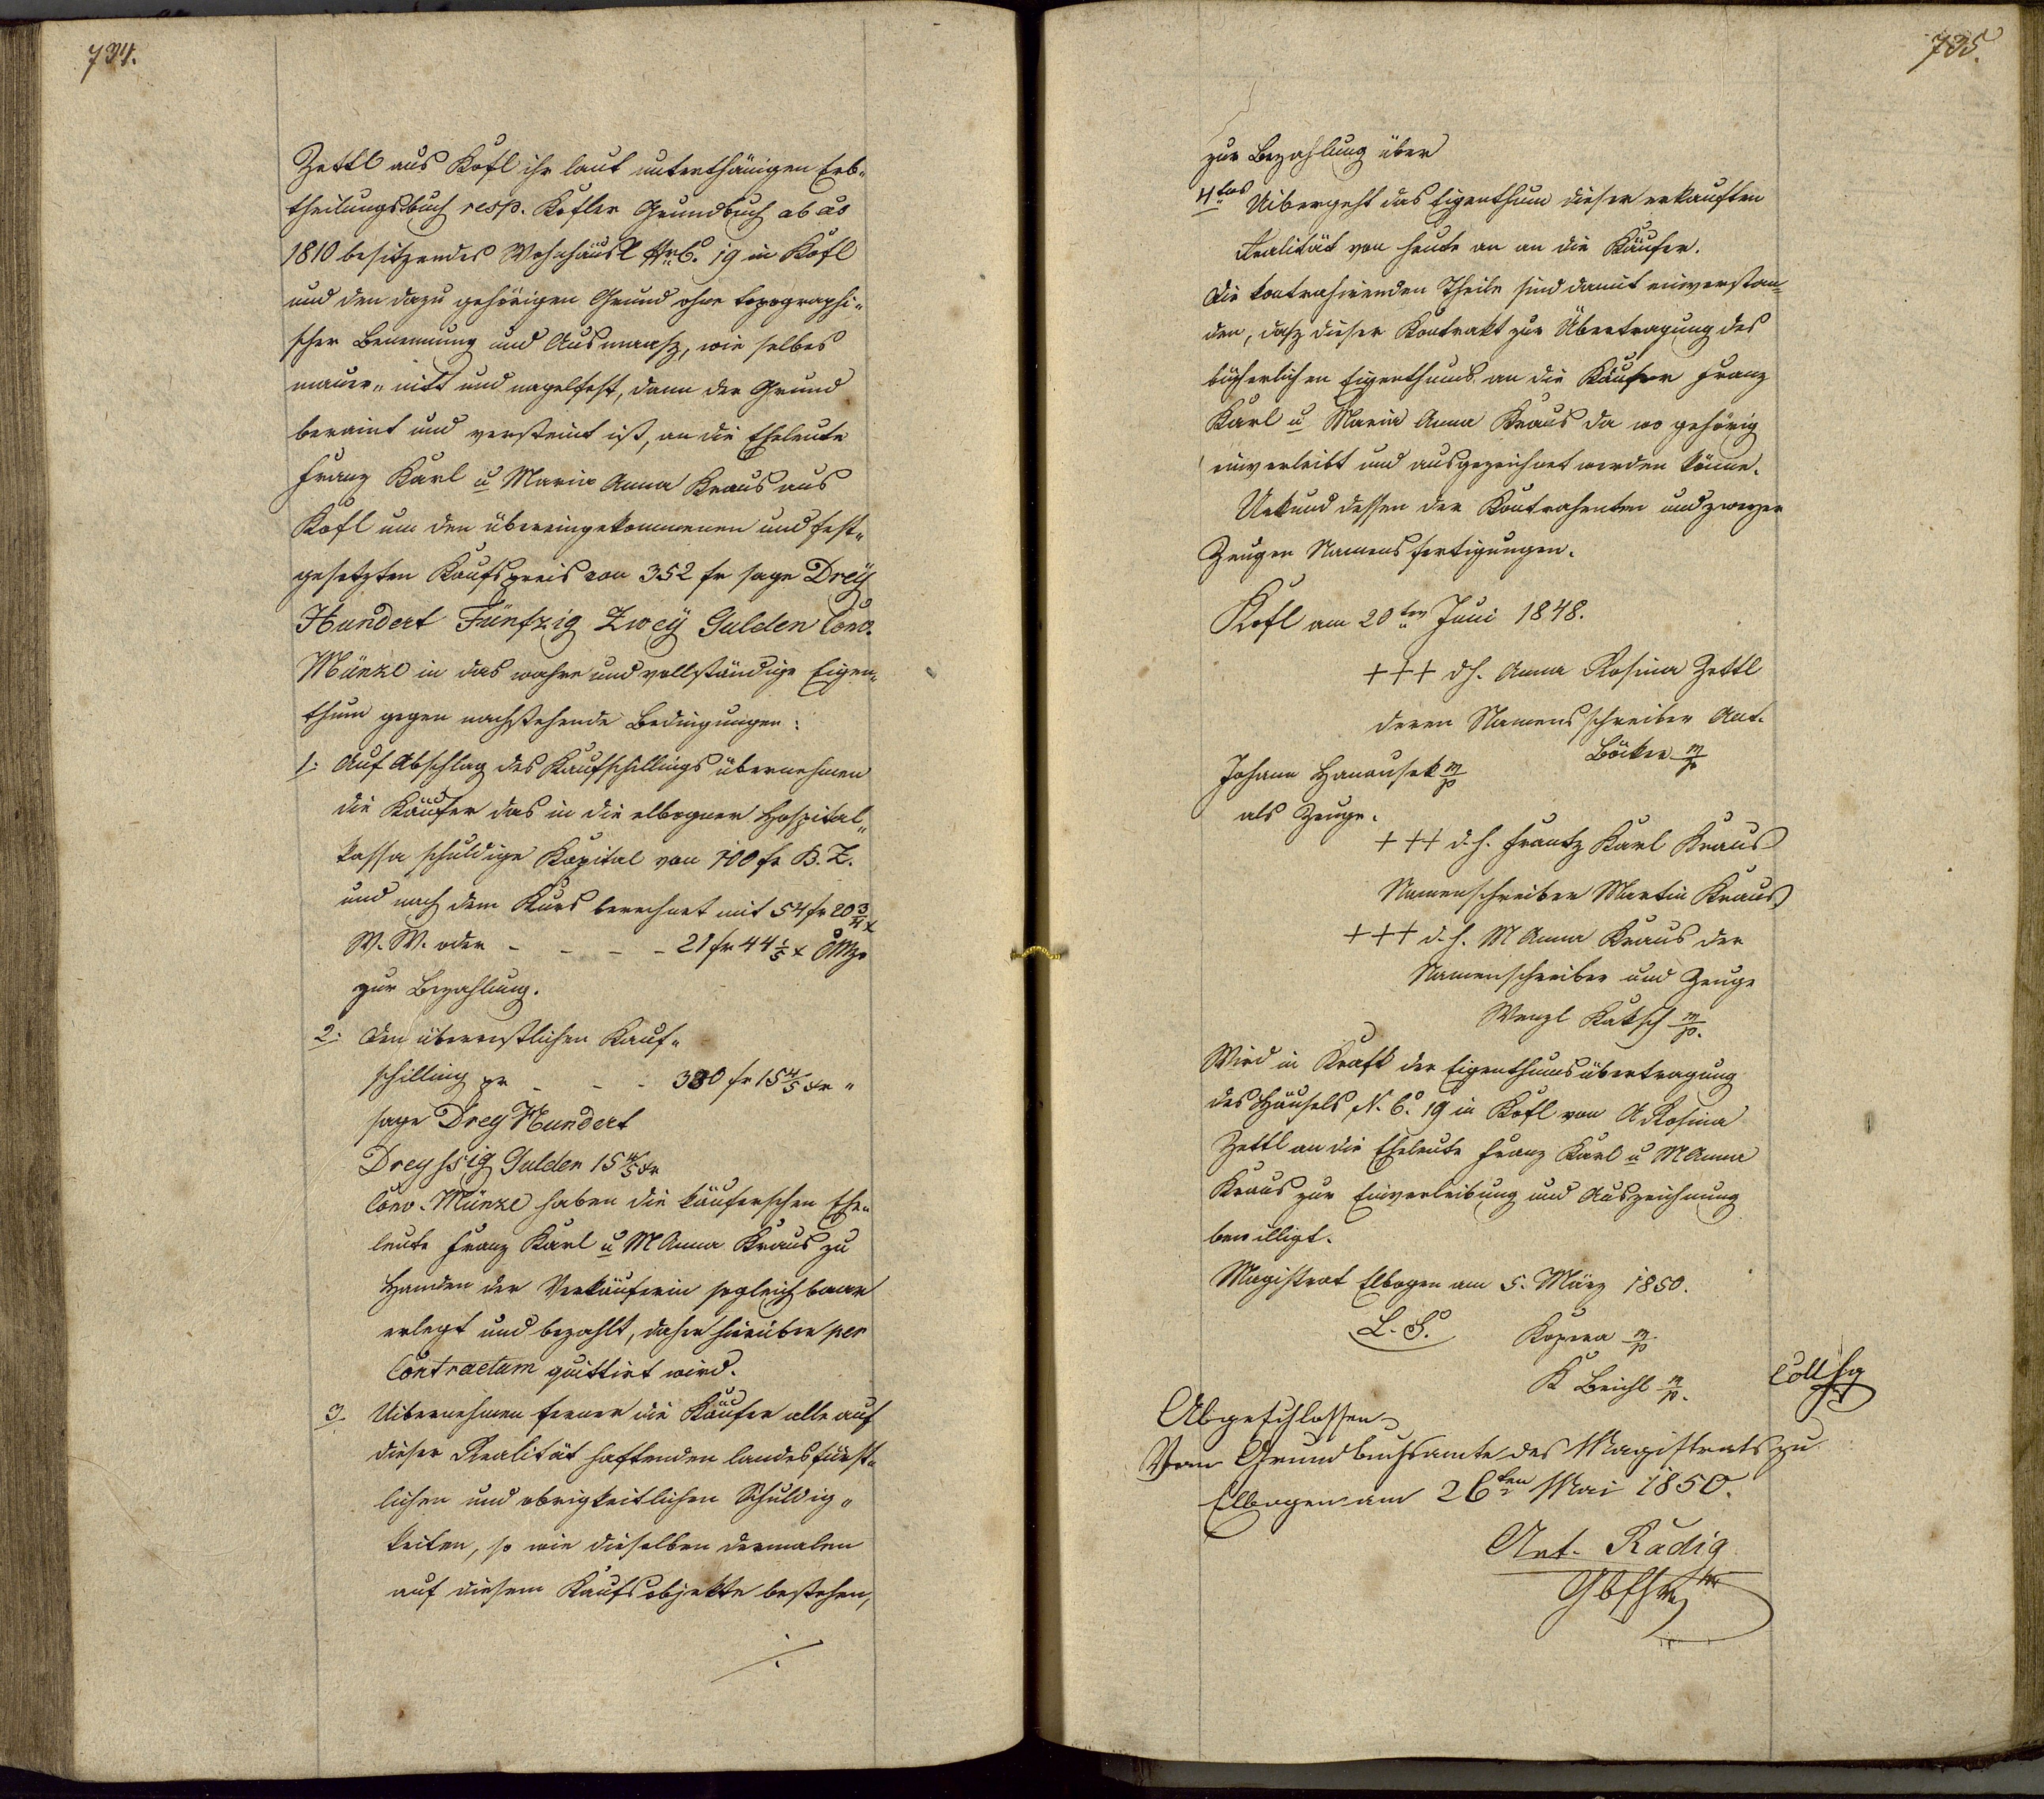 734.
Zettl aus Kofl ihr laut unterthänigen Erb„
theilungsbuch resp. Kofler Grundbuch ab ao
1810 besitzendes Wohnhäusl NrC. 19 in Kofl
und den dazu gehörigen Grund ohne topographi„
scher Benennung und Ausmaasz, wie selbes
mauer„ nitt und nagelfest, dann der Grund
beraint und versteint ist, an die Eheleute
Franz Karl u Maria Anna Kraus aus
Kofl um den übereingekommenen und fest„
gesetzten Kaufspreis von 352 fr sage Dreÿ
Hundert Fünfzig Zweÿ Gulden Conv.
Münze in das wahre und vollständige Eigen„
thum gegen nachstehende Bedingungen:
1: Auf Abschlag des Kaufschillings übernehmen
die Käufer das in die elbogner Hospital„
kassa schuldige Kapital von 100 fr B. Z.
und nach dem Kurs berechnet mit 54 fr 20 3/4 x
W. W. oder - - - - 21 fr 44 1/5 x CMze
zur Bezahlung.
2: Den überrestlichen Kauf„
schilling pr - - - 330 fr 15 4/5 xr „
sage Drey Hundert
Dreyssig Gulden 15 4/5 xr
Conv. Münze haben die käuferschen Ehe„
leute Franz Karl u M Anna Kraus zu
Handen der Verkäuferin sogleich baar
erlegt und bezahlt, daher hierüber per
Contractum quittirt wird.
3. Uibernehmen ferner die Käufer alle auf
dieser Realität haftenden landesfürst„
lichen und obrigkeitlichen Schuldig„
keiten, so wie dieselben dermalen
auf diesem Kaufsobjekte bestehen,
./.
735.
zur Bezahlung über
4tens Uibergeht das Eigenthum dieser erkauften
Realität von heute an an die Käufer.
Die kontrahirenden Theile sind damit einverstan„
den, dasz dieser Kontrakt zur Übertragung des
bücherlichen Eigenthums an die Käufer Franz
Karl u Maria Anna Kraus da wo gehörig
einverleibt und ausgezeichnet werden könne.
Urkund dessen der Kontrahenten und zweyer
Zeugen Namensfertigungen.
Kofl am 20ten Juni 1848.
+++ dh. Anna Rosina Zettl
deren Namensschreiber Ant.
Böcker m/p
Johann Hanausek m/p
als Zeuge.
+++ d. h. Frantz Karl Kraus
Namenschreiber Martin Kraus
+++ d. h. M Anna Kraus der
Namenschreiber und Zeuge
Wenzl Kaksch m/p.
Wird in Kraft der Eigenthumsübertragung
des Häusels N. C. 19 in Kofl von A Rosina
Zettl an die Eheleute Franz Karl u M Anna
Kraus zur Einverleibung und Auszeichnung
bewilligt.
Magistrat Elbogen am 5. März 1850.
L. S. Kopera m/p
K Beichl m/p.
Coll
Abgeschlossen
Vom Grundbuchsamte des Magistrats zu
Elbogen am 26ten Mai 1850.
Ant. Radig
Gbfhr